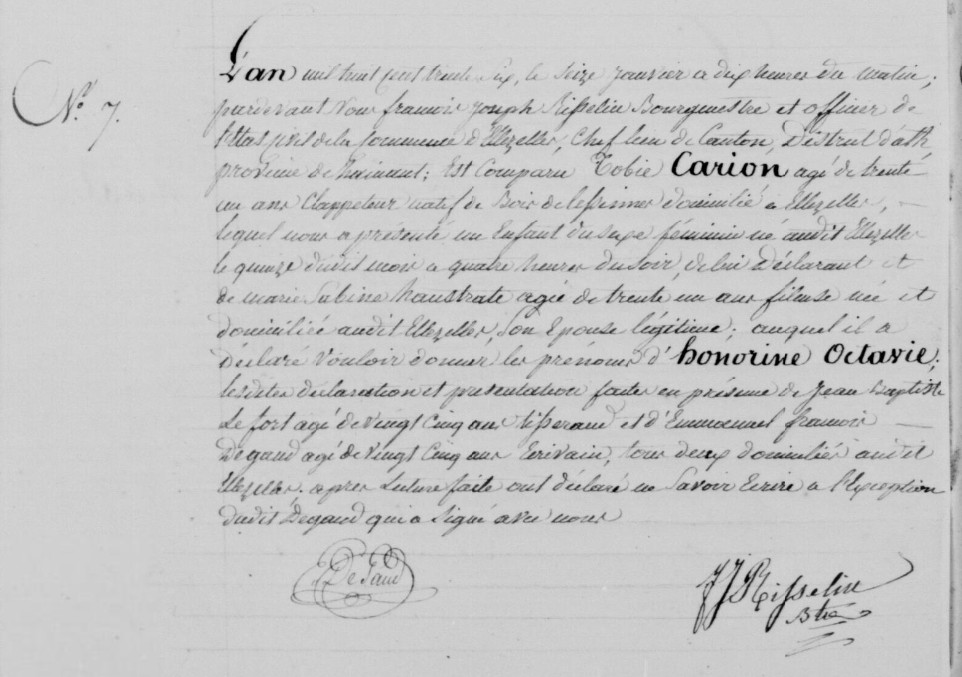 N.º 7.
L'an mil huit cent trente six, le seize janvier a dix heures du matin;
pardevant Nous françois Joseph Risselin Bourgmestre et officier de
l'état civil de la Commune d'Ellezelles, Chef lieu de Canton, District d'ath,
province de hainaut; Est Comparu Tobie Carion agé de trente
un ans Clappeteur natif de Bois de lessinnes domicilié a Ellezelles,
lequel nous a présenté un Enfant du sexe féminin né audit Ellezelles
le quinze dudit mois a quatre heures du soir, de lui déclarant et
de marie Sabine haustrate agée de trente un ans fileuse née et
domiciliée audit Ellezelles, Son Epouse légitime; auquel il a
déclaré Vouloir donner les prénoms d'honorine Octavie;
lesdites déclaration et présentation faites en présence de Jean Baptiste
Lefort agé de Vingt Cinq ans tisserand et d'Emmanuel françois
Degand agé de Vingt Cinq ans Ecrivain, tous deux domiciliés audit
Ellezelles. apres lecture faite ont déclaré ne Savoir Ecrire a l'Exception
dudit Degand qui a Signé avec nous
DeGand
FJRisselin